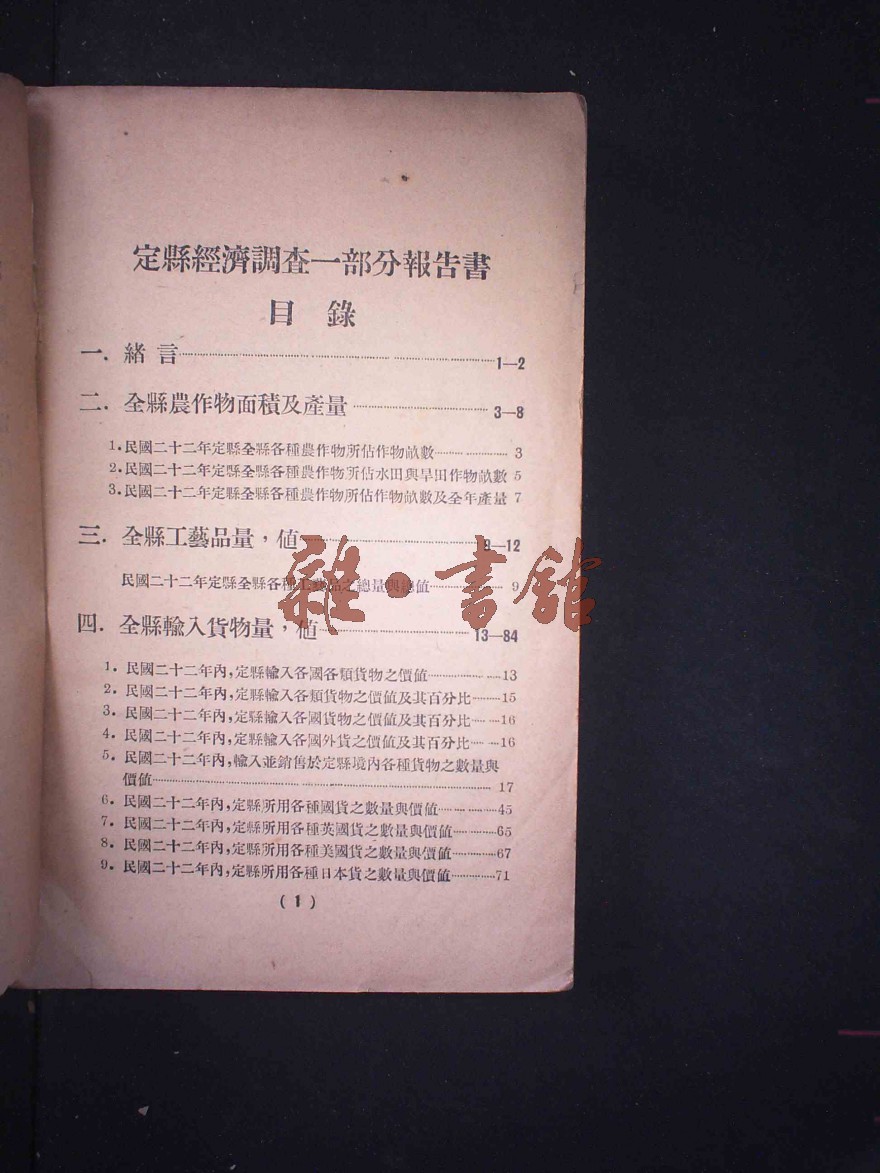 定縣經濟調查一部分報告書
目錄
一. 緒言 1—2
二. 全縣農作物面積及產量 3—8
1. 民國二十二年定縣全縣各種農作物所佔作物畝數 3
2. 民國二十二年定縣全縣各種農作物所佔水田與旱田作物畝數 5
3. 民國二十二年定縣全縣各種農作物所佔作物畝數及全年產量 7
三. 全縣工藝品量，值 9—12
民國二十二年定縣全縣各種工藝品之總量與總值 9
四. 全縣輸入貨物量，值 13—84
1. 民國二十二年內，定縣輸入各國各類貨物之價值 13
2. 民國二十二年內，定縣輸入各類貨物之價值及其百分比 15
3. 民國二十二年內，定縣輸入各國貨物之價值及其百分比 16
4. 民國二十二年內，定縣輸入各國外貨之價值及其百分比 16
5. 民國二十二年內，輸入並銷售於定縣境內各種貨物之數量與
價值 17
6. 民國二十二年內，定縣所用各種國貨之數量與價值 45
7. 民國二十二年內，定縣所用各種英國貨之數量與價值 65
8. 民國二十二年內，定縣所用各種美國貨之數量與價值 67
9. 民國二十二年內，定縣所用各種日本貨之數量與價值 71
(1)
雜·書館